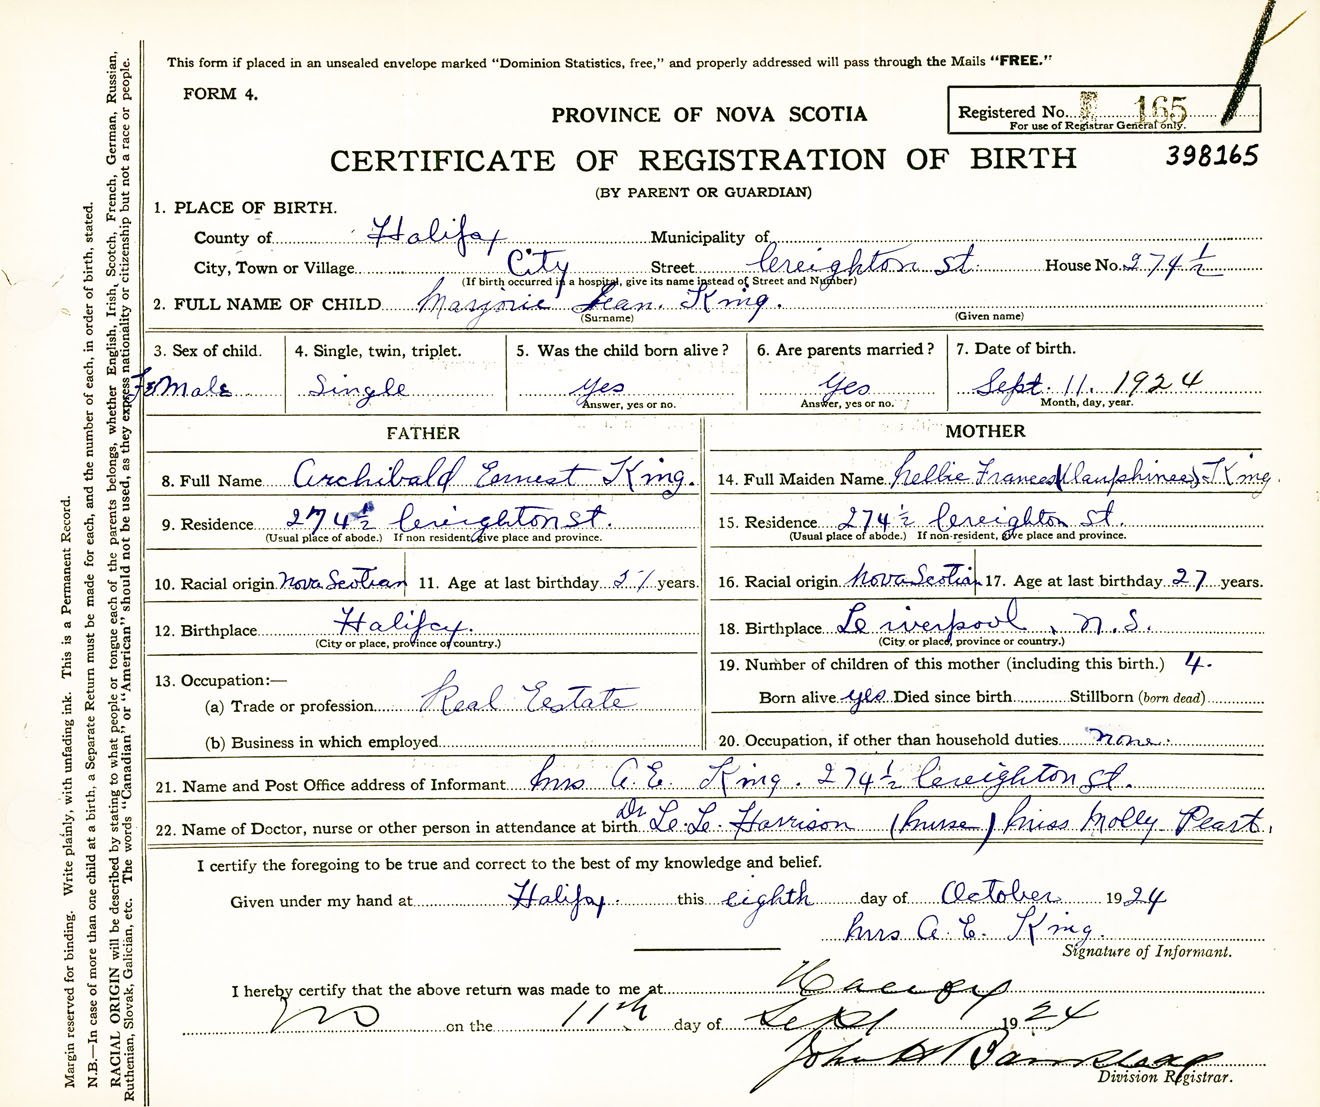 This form if placed in an unsealed envelope marked "Dominion Statistics, free," and properly addressed will pass through the Mails "FREE."
FORM 4.
PROVINCE OF NOVA SCOTIA
Registered No. 165
For use of Registrar General only.
CERTIFICATE OF REGISTRATION OF BIRTH
398165
(BY PARENT OR GUARDIAN)
1. PLACE OF BIRTH.
County of Halifax Municipality of
City, Town or Village City Street Creighton St House No. 274 1/2
(If birth occurred in a hospital, give its name instead of Street and Number)
2. FULL NAME OF CHILD Marjorie Jean King.
(Surname) (Given name)
3. Sex of child. 4. Single, twin, triplet. 5. Was the child born alive? 6. Are parents married? 7. Date of birth.
FeMale Single Yes Yes Sept. 11. 1924
Answer, yes or no. Answer, yes or no. Month, day, year.
FATHER MOTHER
8. Full Name Archibald Ernest King. 14. Full Maiden Name Nellie Frances (Vaughinee) King
9. Residence 274 1/2 Creighton St. 15. Residence 274 1/2 Creighton St.
(Usual place of abode.) If non resident, give place and province. (Usual place of abode.) If non-resident, give place and province.
10. Racial origin Nova Scotian 11. Age at last birthday years. 16. Racial origin Nova Scotian 17. Age at last birthday 27 years.
12. Birthplace Halifax. 18. Birthplace Liverpool, N.S.
(City or place, province or country.) (City or place, province or country.)
19. Number of children of this mother (including this birth.) 4.
13. Occupation:—
(a) Trade or profession Real Eestate Born alive yes Died since birth Stillborn (born dead)
(b) Business in which employed 20. Occupation, if other than household duties none.
21. Name and Post Office address of Informant Mrs A. E. King. 274 1/2 Creighton St.
22. Name of Doctor, nurse or other person in attendance at birth Dr Harrison (Nurse) Miss Molly Peart.
I certify the foregoing to be true and correct to the best of my knowledge and belief.
Given under my hand at Halifax. this eighth day of October 1924
Mrs A. E. King.
Signature of Informant.
I hereby certify that the above return was made to me at Halifax
NS on the 11th day of Sept 1924
John H
Division Registrar.
Margin reserved for binding. Write plainly, with unfading ink. This is a Permanent Record.
N.B.—In case of more than one child at a birth, a Separate Return must be made for each, and the number of each, in order of birth, stated.
RACIAL ORIGIN will be described by stating to what people or tongue each of the parents belongs, whether English, Irish, Scotch, French, German, Russian,
Ruthenian, Slovak, Galician, etc. The words "Canadian" or "American" should not be used, as they express nationality or citizenship but not a race or people.